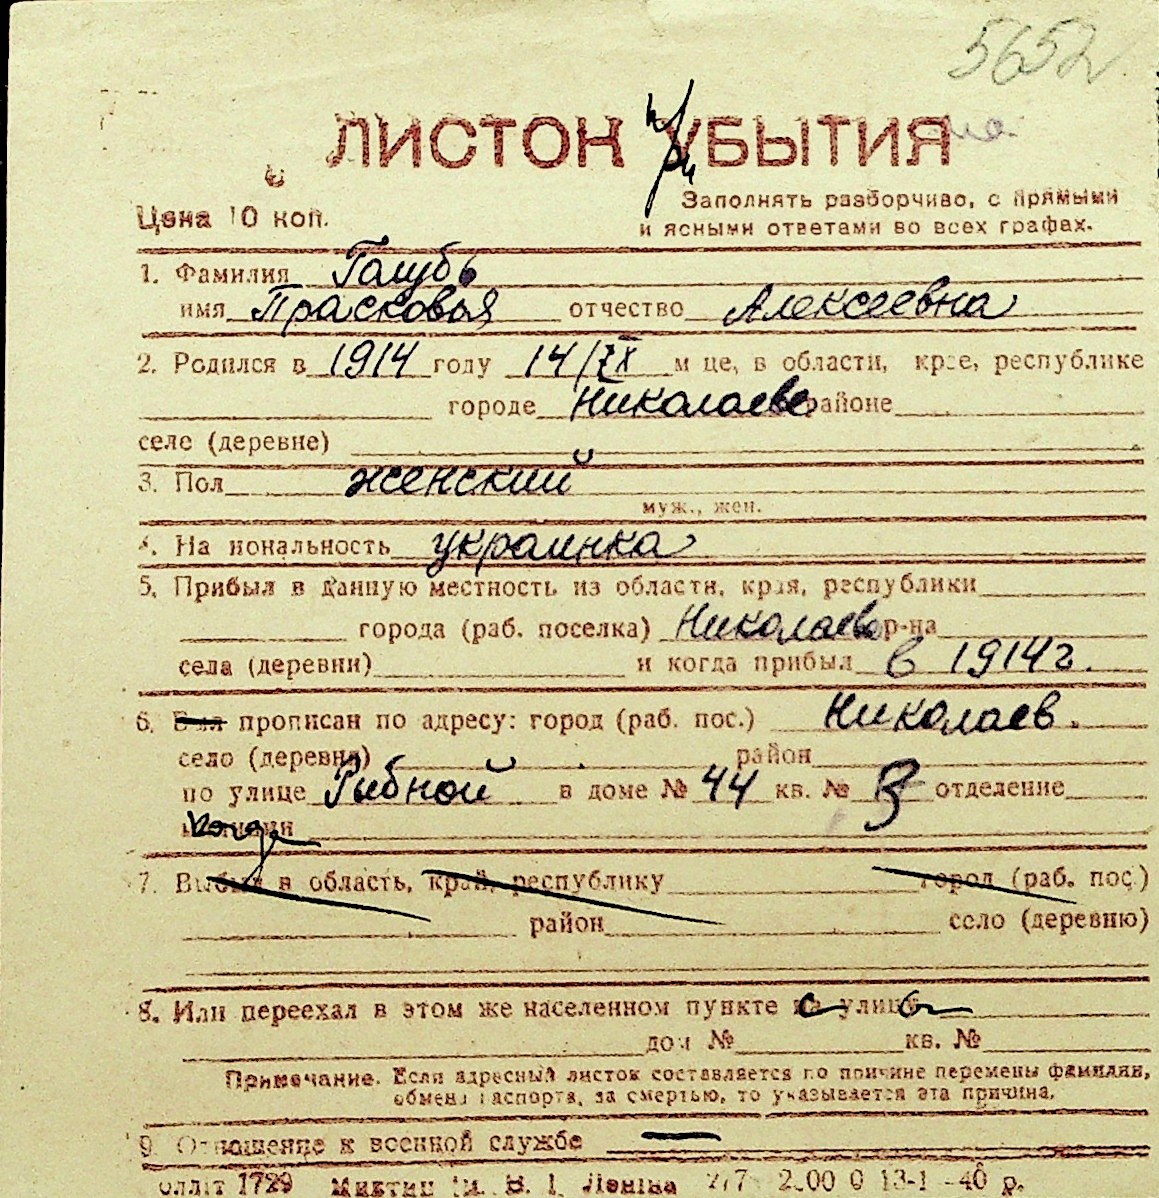 5652
ЛИСТОК УБЫТИЯ
при
Цена 10 коп.
Заполнять разборчиво, с прямыми
и ясными ответами во всех графах.
1. Фамилия Голубь
имя Прасковья отчество Алексеевна
2. Родился в 1914 году 14/IX м це, в области, крае, республике
городе Николаеве районе
селе (деревне)
3. Пол женский
муж., жен.
4. На иональность украинка
5. Прибыл в данную местность из области, края, республики
города (раб. поселка) Николаев р-на
села (деревни) и когда прибыл в 1914 г.
6. Был прописан по адресу: город (раб. пос.) Николаев.
село (деревня) район
по улице Рибной в доме № 44 кв. № 3 отделение
7. Выбыл в область, край, республику город (раб. пос.)
район село (деревню)
8. Или переехал в этом же населенном пункте на с улицу
дом № кв. №
Примечание. Если адресный листок составляется по причине перемены фамилии,
обмена паспорта, за смертью, то указывается эта причина.
9. Отношение к военной службе —
1729 В. І. Леніна 200 0 13-1 -40 р.